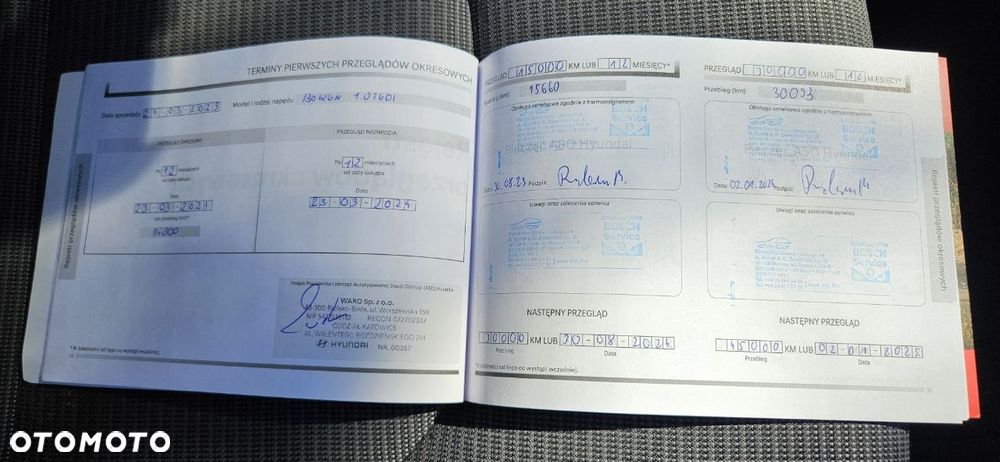 TERMINY PIERWSZYCH PRZEGLĄDÓW OKRESOWYCH
Data sprzedaży 24-03-2023 Model i rodzaj napędu I30 WGN 1.0 TGDI
PRZEGLĄD OKRESOWY
Po 12 miesiącach
od daty zakupu
Data
23-03-2024
lub przebieg km*
15000
PRZEGLĄD NADWOZIA
Po 12 miesiącach
od daty zakupu
Data
23-03-2024
Rejestr przeglądów okresowych
Podpis Pracownika i pieczęć Autoryzowanej Stacji Obsługi (ASO) Hyundai
WARO Sp. z o.o.
43-300 Bielsko-Biała, ul. Warszawska 158
REGON 072702387
ODDZIAŁ KATOWICE
AL. WALENTEGO ROŹDZIEŃSKIEGO 214
HYUNDAI NR. 00287
*W zależności od tego co wystąpi wcześniej.
PRZEGLĄD 15000 KM LUB 12 MIESIĘCY*
Przebieg (km) 15660
Obsługa serwisowa zgodnie z harmonogramem
BOSCH
Service
Pieczęć ASO Hyundai
Data: 30.08.23 Podpis:
Uwagi oraz zalecenia serwisu
BOSCH
Service
NASTĘPNY PRZEGLĄD
30000 KM LUB 30-08-2024
Przebieg Data
*W zależności od tego co wystąpi wcześniej.
PRZEGLĄD 30000 KM LUB 12 MIESIĘCY*
Przebieg (km) 30093
Obsługa serwisowa zgodnie z harmonogramem
BOSCH
Service
ASO Hyundai
Data: 02.01.2024 Podpis:
Uwagi oraz zalecenia serwisu
BOSCH
Service
NASTĘPNY PRZEGLĄD
45000 KM LUB 02-01-2025
Przebieg Data
Rejestr przeglądów okresowych
OTOMOTO